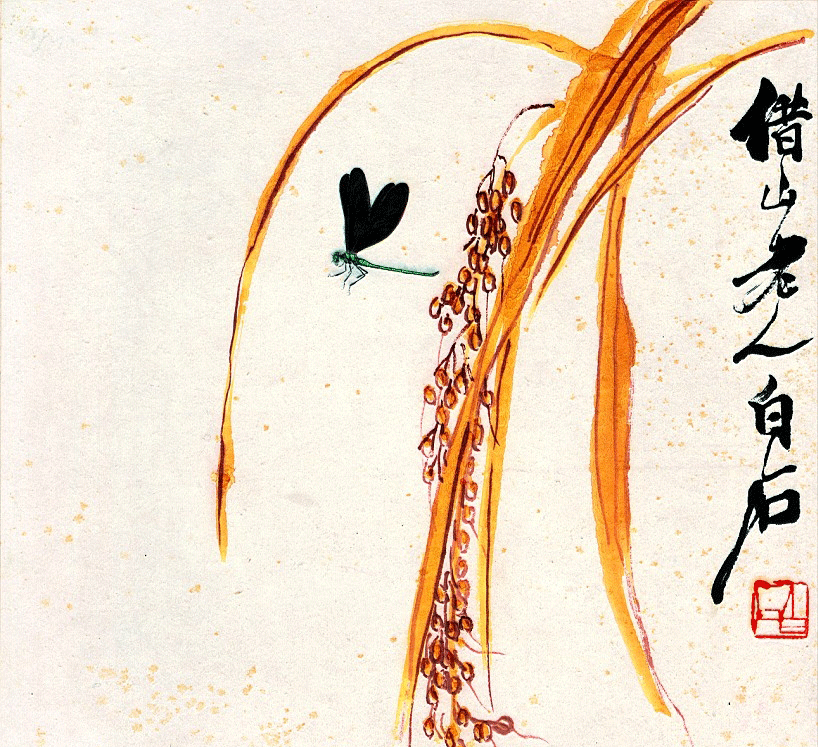 借山老人白石